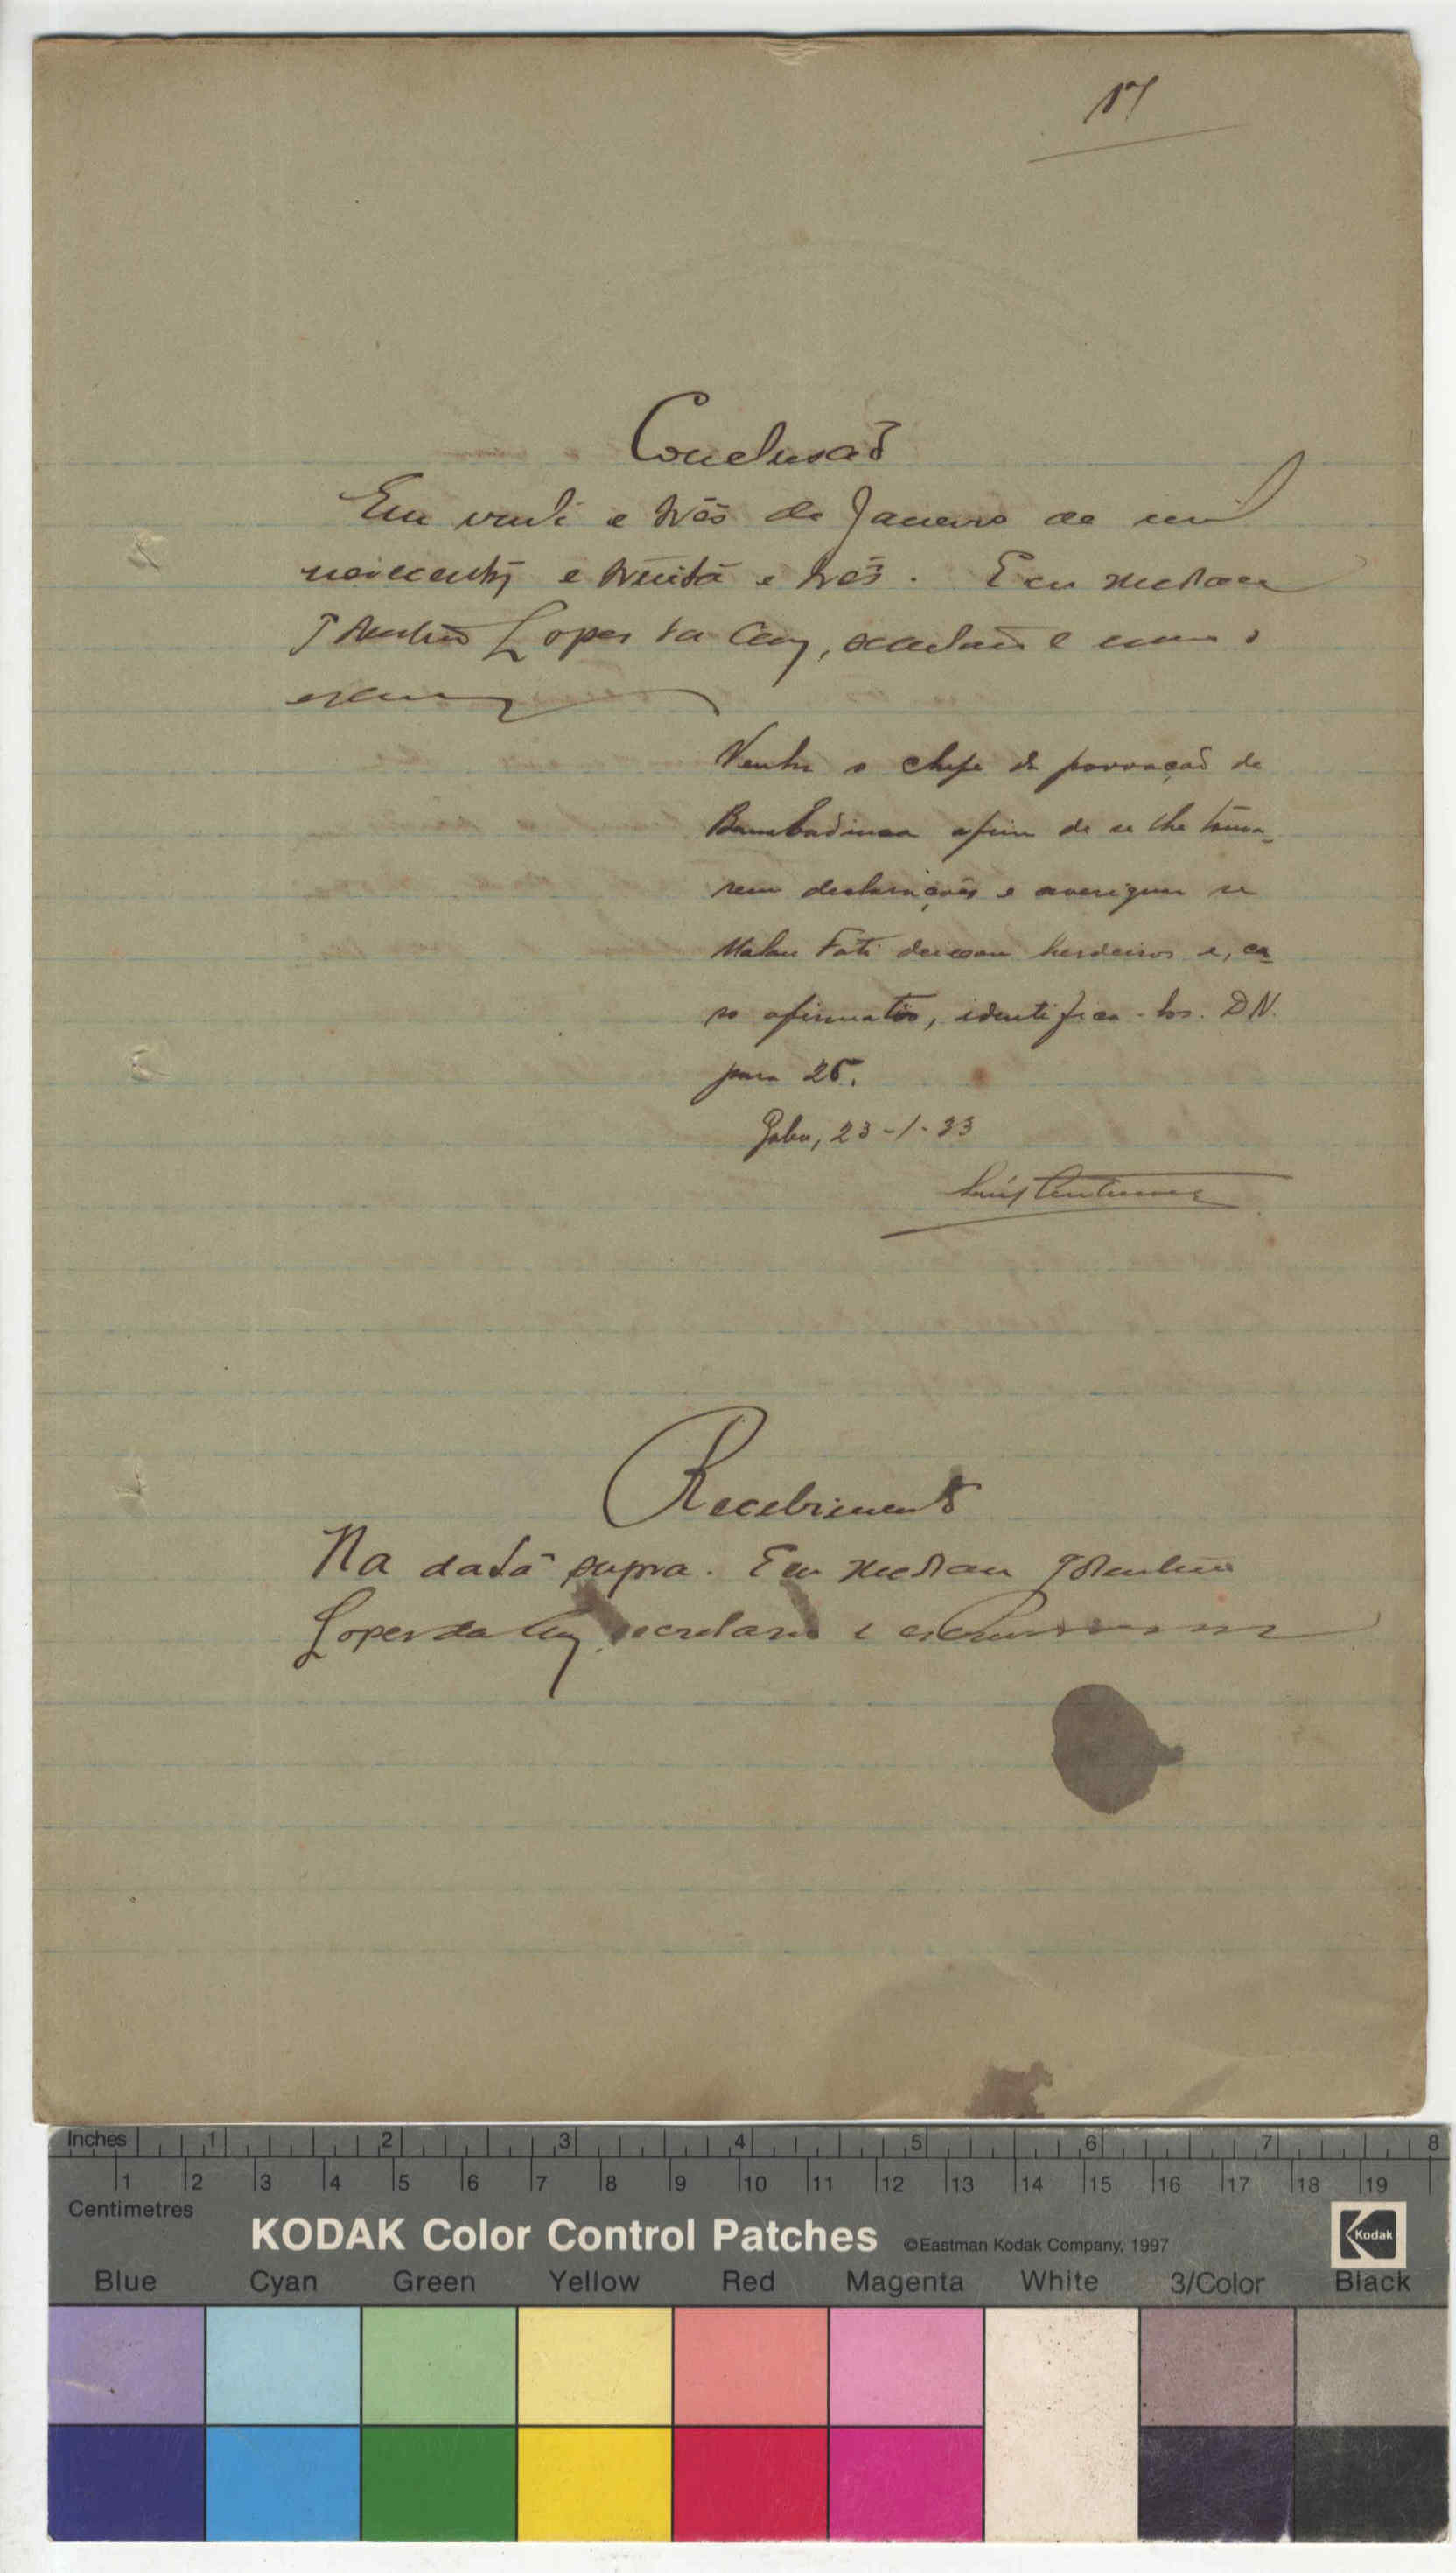 17
Conclusão
Em vinti e três de Janeiro de mil
novecentos e trinta e três. Eu
Lopes da Cruz, secretario e
escrevy
Venha o chefe da povoação de
Bambadinca afim de se lhe toma-
rem declarações e averiguar se
Malan Fati deixou herdeiros e, ca-
so afirmativo, identifica-los. DN.
para 25.
Gabu, 23-1-33
Luís
Recebimento
Na data supra. Eu
Lopes da Cruz, secretario e
Inches 1 2 3 4 5 6 7 8
1 2 3 4 5 6 7 8 9 10 11 12 13 14 15 16 17 18 19
Centimetres
KODAK Color Control Patches ©Eastman Kodak Company, 1997 Kodak
Blue Cyan Green Yellow Red Magenta White 3/Color Black